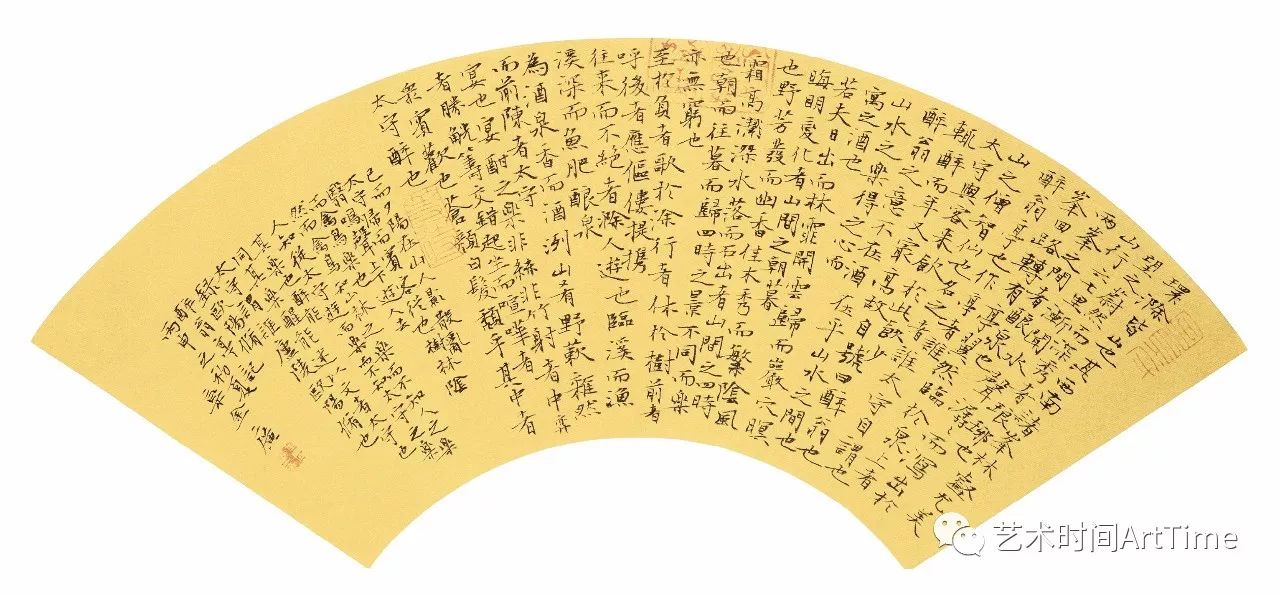 環滁皆山也其西南諸峯林壑尤美
望之蔚然而深秀者瑯琊也
山行六七里漸聞水聲潺潺而瀉出於
兩峯之間者釀泉也
峯回路轉有亭翼然臨於泉上者
醉翁亭也作亭者誰
山之僧智仙也名之者誰太守自謂也
太守與客來飲於此飲少
輒醉而年又最高故自號曰醉翁也
醉翁之意不在酒在乎山水之間也
山水之樂得之心而
寓之酒也
若夫日出而林霏開雲歸而巖穴暝
晦明變化者山間之朝暮
也野芳發而幽香佳木秀而繁陰風
霜高潔深水落而石出者山間之四時
也朝而往暮而歸四時之景不同而樂
亦無窮也
至於負者歌於塗行者休於樹前者
呼後者應傴僂提攜
往來而不絕者滁人遊也臨溪而漁
溪深而魚肥釀泉
為酒泉香而酒洌山肴野蔌雜然
而前陳者太守
宴也宴酣之樂非絲非竹射者中弈
者勝觥籌交錯起坐而諠譁者
衆賓歡也蒼顏白髮頹乎其中者
太守醉也
已而夕陽在山人影散亂
太守歸而賓客從也樹林陰
翳鳴聲上下遊人去
而禽鳥樂也
然而禽鳥知山林之樂而不知人之樂
人知從太守遊而樂而不知太守之
樂其樂也醉能
同其樂醒能述以文者太守也
太守謂誰廬陵歐陽脩也
錄歐陽脩
醉翁亭記
丙申之初夏
金廬
艺术时间ArtTime